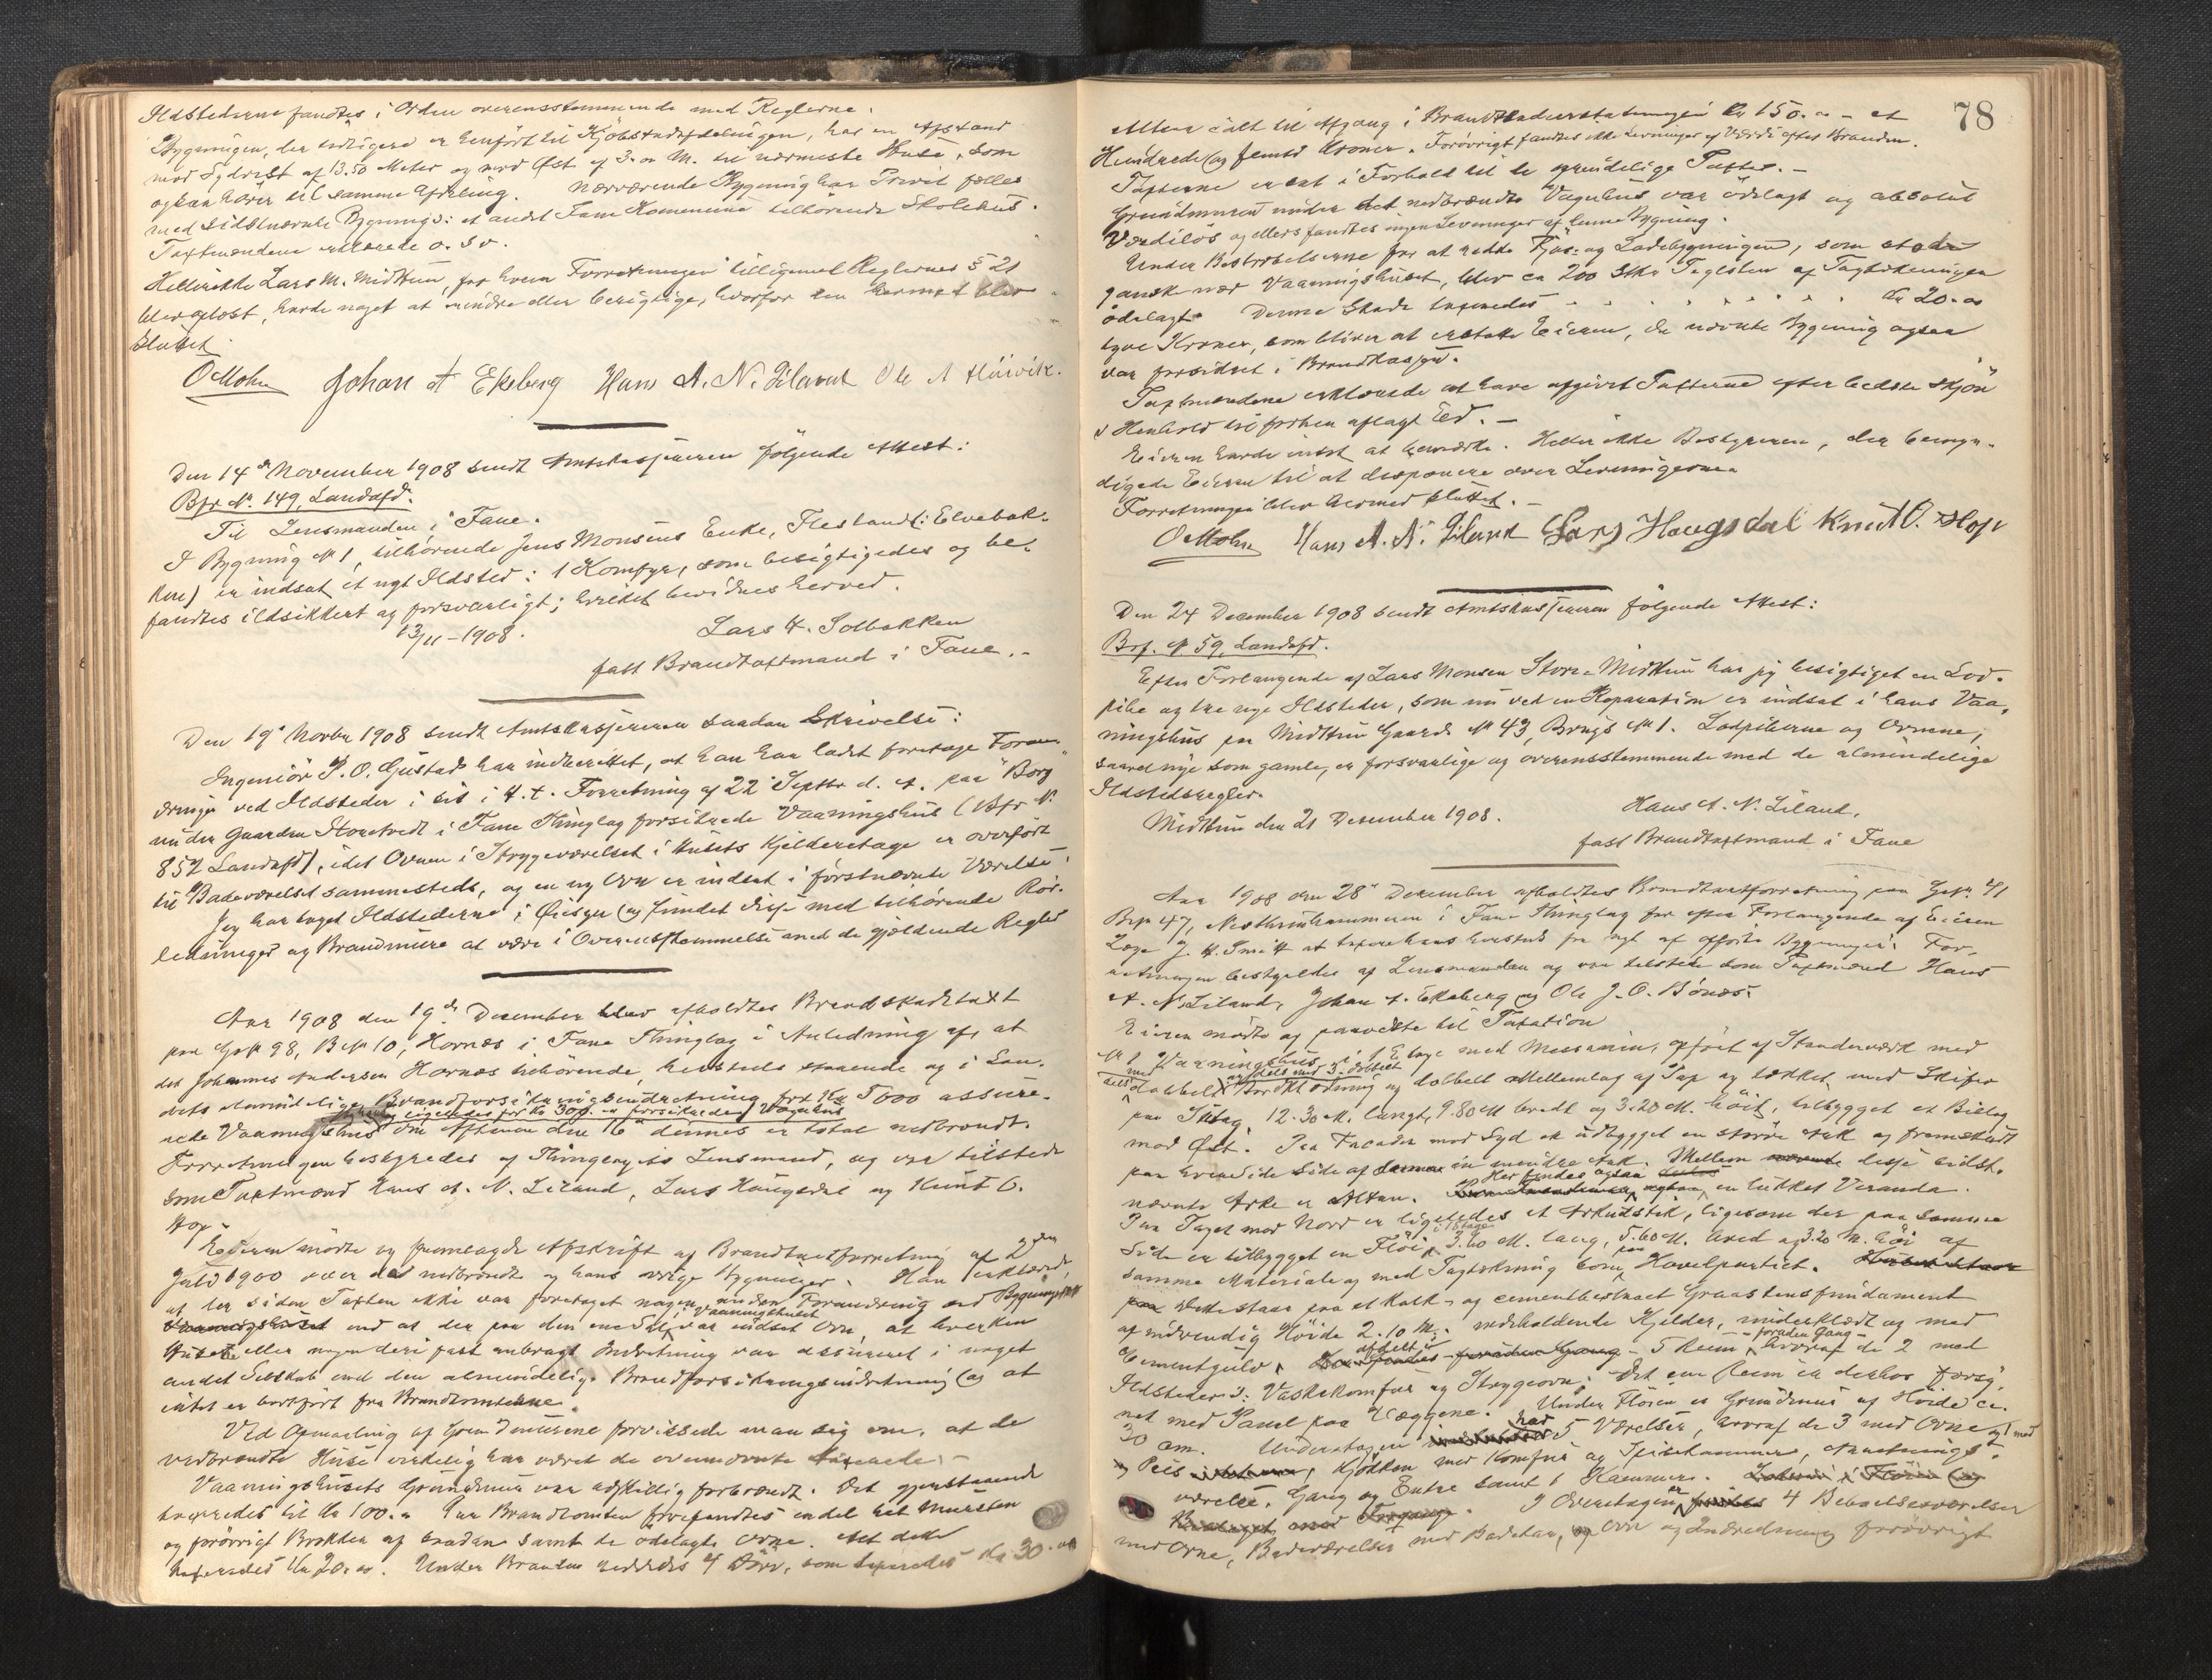 Ildstederne fandtes i Orden overensstemmende med Reglerne.
Bygningen, der tidligere er henført til Kjøbstadafdelingen, har en Afstand
mod Sydvest af 13.50 Meter og mod Øst af 3.00 M. til nærmeste Huse, som
ogsaa hører til samme Afdeling. Nærværende Bygning har Privet fælles
med sidstnævnte Bygning: et andet Fane Kommune tilhørende Skolehus.
Taxtmændene erklærede o. s. v.
Hellerikke Lars M. Midttun, for hvem Forretningen tilligemed Reglernes § 21
blev oplæst, havde noget at erindre eller berigtige, hvorfor den hermed blev
sluttet.
O Mohn Johan A Ekeberg Hans A. N. Liland Ole A Høivik.
Den 14de November 1908 sendt Amtskasjereren følgende Attest:
Bfr No. 149, Landafd.
Til Lensmanden i Fane.
I Bygning No 1, tilhørende Jens Monsens Enke, Flesland (: Elvebak-
ken) er indsat et nyt Ildsted: 1 Komfyr, som besigtigedes og be-
fandtes ildsikkert og forsvarligt; hvilket bevidnes herved.
13/11-1908. Lars H. Solbakken
fast Brandtaxtmand i Fane.-
Den 19' Novbr 1908 sendt Amtskasjereren saadan Skrivelse:
Ingeniør P. O. Gjustad har indberettet, at han har ladet foretage Foran-
dringer ved Ildsteder i sit i H. t. Forretning af 22' Septbr d. A. paa "Borg"
under Gaarden Storetvedt i Fane Thinglag forsikrede Vaaningshus (Bfr No.
852 Landafd), idet Ovnen i Strygeværelset i Husets Kjelderetage er overført
til Badeværelset sammesteds, og en ny Ovn er indsat i førstnævnte Værelse.
Jeg har taget Ildstederne i Øiesyn og fundet disse med tilhørende Rør-
ledninger og Brandmure at være i Overensstemmelse med de gjældende Regler
Aar 1908 den 19de December blev afholdtes Brandskadetaxt
paa Gno 98, Bno 10, Hornæs i Fane Thinglag i Anledning af, at
det Johannes Andersen Hornæs tilhørende, hersteds staaende og i Lan-
dets almindelige Brandforsikringsindretning for Kr 5000 assure-
rede Vaaningshus og ligeledes for Kr 300.- forsikrede Vognhus om Aftenen den 16' dennes er total nedbrændt.
Forretningen bestyredes af Thinglagets Lensmand, og var tilstede
som Taxtmænd Hans A. N. Liland, Lars Haugsdal og Knut O.
Hop.
Eieren mødte og fremlagde Afskrift af Brandtaxtforretning af 2den
Juli 1900 over det nedbrændte og hans øvrige Bygninger. Han erklærede,
at der siden Taxten ikke var foretaget nogen anden Forandring ved Bygningen
Vaaningshuset end at der paa den ene Sal var indsat Ovn, at hverken
Huset eller nogen deri fast anbragt Indretning var assureret i noget
andet Selskab end den almindelige Brandforsikringsindretning og at
intet er bortført fra Brandtomterne.
Ved Opmaaling af Grundmurene forvissede man sig om, at de
nedbrændte Huse virkelig har været de ovennævnte taxerede.-
Vaaningshusets Grundmur var adskillig forbrændt. Det gjenstaaende
taxeredes til Kr 100.- Paa Brandtomten forefandtes endel hel Mursten
og forøvrigt Brokker af saadan samt de ødelagte Ovne. Alt dette
taxeredes Kr 20.00. Under Branden reddedes 4 Døre, som taxeredes Kr 30.00
78
Altsaa ialt til Afgang i Brandskadeerstatningen Kr 150.- et
Hundrede og femti Kroner. Forøvrigt fandtes ikke Levninger af Værdi efter Branden.
Taxterne er sat i Forhold til de oprindelige Taxter.-
Grundmuren under det nedbrændte Vognhus var ødelagt og absolut
Værdiløs og ellers fandtes ingen Levninger af denne Bygning.
Under Bestræbelserne for at redde Fjøs- og Ladebygningen, som stode
ganske nær Vaaningshuset, blev ca 200 Stkr Taglsten af Tagtækningen
ødelagt. Denne Skade taxeredes Kr 20.00
tyve Kroner, som bliver at erstatte Eieren, da nævnte Bygning ogsaa
var forsikret i Brandkassen.
Taxtmændene erklærede at have afgivet Taxterne efter bedste Skjøn
i Henhold til forhen aflagt Eed.-
Eieren havde intet at bemærke. Heller ikke Bestyreren, der bemyn-
digede Eieren til at disponere over Levningerne.
Forretningen blev hermed sluttet.-
O Mohn Hans A. N. Liland Lars Haugsdal Knut O. Hop
Den 24 December 1908 sendt Amtskasjereren følgende Attest:
Bfr. No 59, Landafd.
Efter Forlangende af Lars Monsen Store-Midttun har jeg besigtiget en Sod-
pibe og tre nye Ildsteder, som nu ved en Reparation er indsat i hans Vaa-
ningshus paa Midttun Gaards No 43, Brugs No 1. Sodpiberne og Ovnene,
saavel nye som gamle, er forsvarlige og overensstemmende med de almindelige
Ildstedsregler.
Midttun den 21 Desember 1908. Hans A. N. Liland,
fast Brandtaxtmand i Fane
Aar 1908 den 28' December afholdtes Brandtaxtforretning paa Gno 41
Bno 47, Nesttunhammeren i Fane Thinglag for efter Forlangende af Eieren
Læge J. H. Smitt at taxere hans hersteds fra nyt af opførte Bygninger. For-
retningen bestyredes af Lensmanden og var tilstede som Taxtmænd Hans
A. N. Liland, Johan A. Ekeberg og Ole J. O. Bønes.
Eieren mødte og paaviste til Taxation
No 1 Vaaningshus i 1 Etage med Messanin, opført af Stenderværk med
dels med dobbelt og dels med 3-dobbelt Bordklædning og dobbelt Mellemlag af Pap og tækket med Skifer
paa Sutag, 12.30 M. langt, 9.80 M bredt og 3.20 M. høit, tilbygget et Bislag
mod Øst. Paa Facaden mod Syd er udbygget en større Ark og fremskudt
paa hver Side af denne en mindre Ark. Mellem nævnte disse sidst-
nævnte Arke er Altan. Her findes ogsaa en lukket Veranda.
Paa Taget mod Nord er ligeledes et Arkudstik, ligesom der paa samme
Side er tilbygget en Fløi i 1 Etage, 3.60 M. lang, 5.60 M. bred og 3.20 M. høi af
samme Materiale og med Tagtækning som paa Hovedpartiet.
Dette staar paa et Kalk- og cementberappet Graastensfundament
af indvendig Høide 2.10 M. indeholdende Kjelder, underklædt og med
Cementgulv, afdelt i 5 Rum - foruden Gang - hvoraf de 2 med
Ildsteder: Vaskekomfur og Strygeovn. Det ene Rum er desuden forsy-
net med Panel paa Væggene. Under Fløien er Grundmur af Høide ca.
30 cm. Underetagen har 5 Værelser, hvoraf de 3 med Ovne og 1 med
Peis, Kjøkken med Komfur og Spisekammer, Anretnings-
værelse, Gang og Entre samt 1 Kammer.
I Overetagen er 4 Beboelsesværelser
med Ovne, Badeværelse med Badekar, Ovn og Indredning forøvrigt